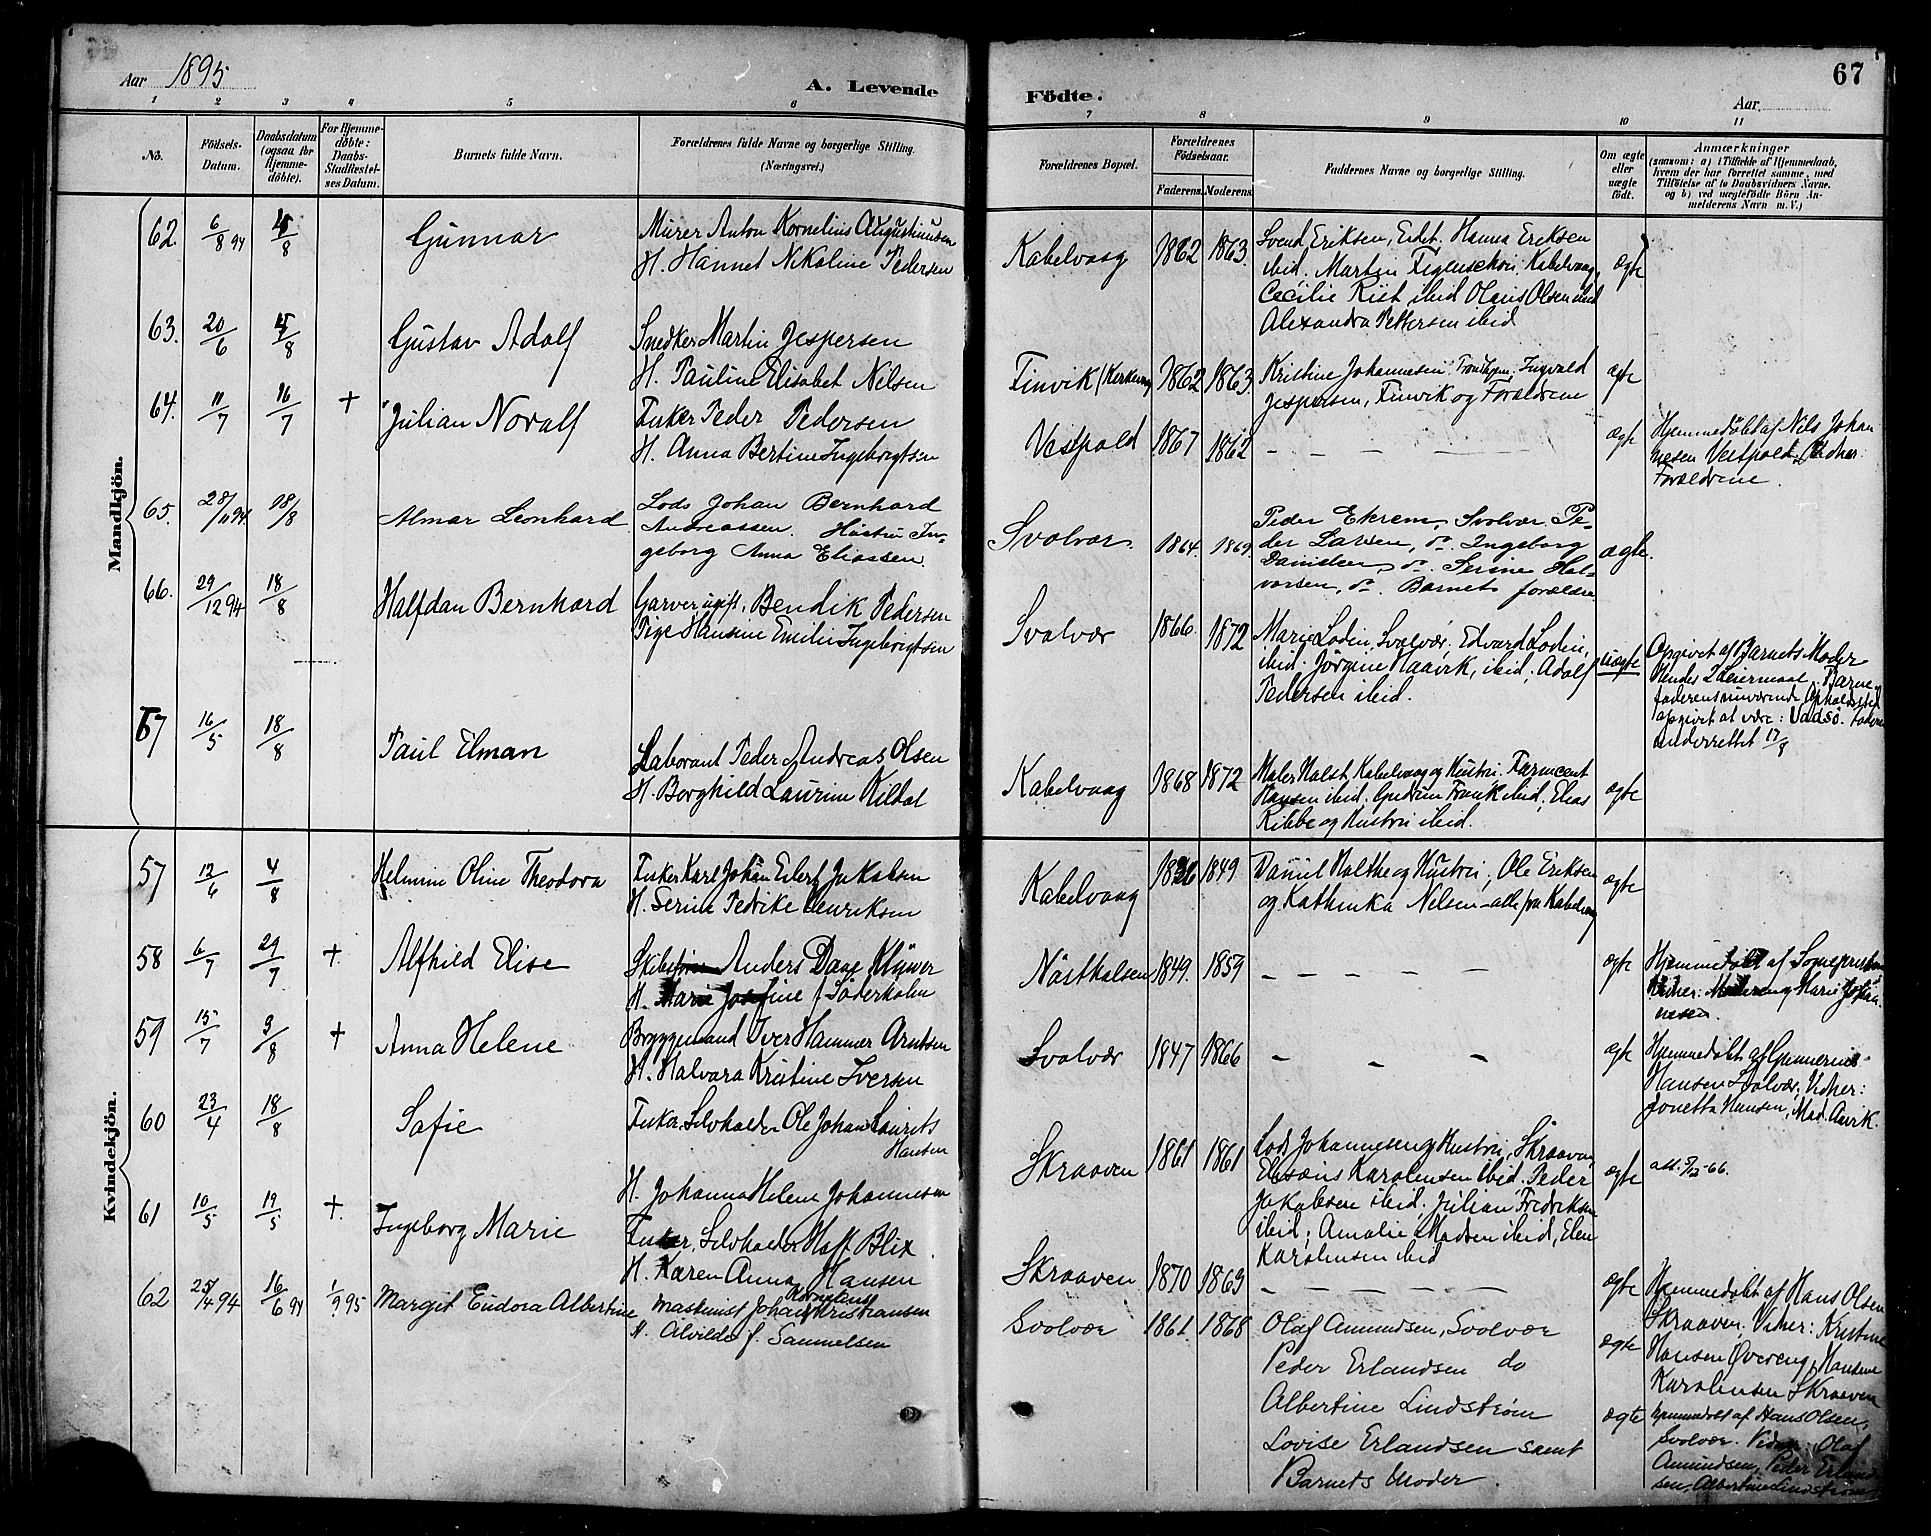 Aar 1895
A. Levende
Födte.
67
Aar
1 2 3 4 5 6 7 8 9 10 11
No.
Födsels-
Datum.
Daabsdatum
(ogsaa for
Hjemme-
döbte).
For Hjemme-
döbte:
Daabs-
Stadfæstel-
ses Datum.
Barnets fulde Navn.
Forældrenes fulde Navne og borgerlige Stilling.
(Næringsvei.)
Forældrenes Bopæl.
Forældrenes
Födselsaar.
Faderens.
Moderens.
Faddernes Navne og borgerlige Stilling.
Om ægte
eller
uægte
födt.
Anmærkninger
(saasom: a) i Tilfælde af Hjemmedaab,
hvem der har forrettet samme, med
Tilföielse af to Daabsvidners Navne,
og b) ved uægtefödte Börn An-
melderens Navn m. V.)
Mandkjön.
62. 6/8 94 4/8 Gunnar
Murer Anton Kornelius Augustinusen
H. Hannet Nikoline Pedersen
Kabelvaag 1862 1863.
Svend Eriksen, Hanna Eriksen
ibid. Martin Kabelvaag,
Cecilie Riit ibid Olaus Olsen ibid
Alexandra Pettersen ibid
ægte
63. 20/6 4/8 Gustav Adolf
Snedker Martin Jespersen
H. Pauline Elisabet Nilsen
Finvik (Kirkevaag) 1862 1863.
Kristine Johannesen Trondhjem, Ingvald
Jespersen, Finvik og Forældrene
ægte
64. 11/7 16/7 + Julian Noralf
Fisker Peder Pedersen
H. Anna Bertine Ingebrigtsen
Vestpold 1867 1862
— — — — —
ægte
Hjemmedöbt af Nils Johan
nesen Vestpold, Vidner:
Forældrene.
65. 28/11 94 18/8 Almar Leonhard
Lods Johan Bernhard
Andreassen. Hustru In-
geborg Anna Eliassen.
Svolvær. 1864. 1869
Peder Ekrem, Svolvær. Pe-
der Larsen, do. Ingeborg
Danielsen do. Serine Hal-
vorsen, do. Barnets forældre
ægte.
66. 29/12 94 18/8 Halfdan Bernhard
Garver ugift, Bendik Pedersen
Pige Hansine Emilie Ingebrigtsen
Svolvær 1866. 1872
Marie Lodin, Svolvær, Edvard Lodin,
ibid. Jörgine Naavik, ibid, Adolf
Pedersen ibid.
uægte
Opgivet af Barnets Moder
Hendes 2 Leiermaal. Barne-
faderens nuværende Opholdssted
opgivet at være: Vadsö. Faderen
underrettet 17/8
67 16/5 18/8 Paul Elman
Laborant Peder Andreas Olsen
H. Borghild Laurine Kildal
Kabelvaag 1868 1872
Maler Holst, Kabelvaag og Hustru.
Hansen ibid. Gudrun Frank ibid. Elias
Ribbe og Hustru ibid.
ægte
Kvindekjön.
57 12/6 4/8 Helmine Oline Theodora
Fisker Karl Johan Eilert Jakobsen
H. Serine Pedrike Henriksen
Kabelvaag 1836 1849
Daniel Holthe og Hustru, Ole Eriksen
og Kathinka Nelsen – alle fra Kabelvaag
ægte
58 6/7 29/7 +. Alfhild Elise
Skibsförer Anders Daae Klüwer
H. Marie Josefine f. Söderholm
1849. 1859
— — — — —
ægte
Hjemmedöbt af Sognepresten
Vidner: Moderen og Marie Johan-
nesen.
59 15/7 3/8 + Anna Helene
Bryggemand Iver Hammer Arntsen
H. Halvara Kristine Iversen
Svolvær 1847 1866
— — —
ægte
Hjemmedöbt af Gunnerius
Hansen Svolvær, Vidner:
Jonetta Hansen, Mad. Aavik.
60 23/4 18/8 Sofie
Fisker, Selvholder Ole Johan Laurits
Hansen
H. Johanna Helene Johannesen
Skraaven 1861 1861
Lods Johannesen og Hustru, Skraaven,
Elesæus Karolensen ibid. Peder
Jakobsen ibid. Julian Fredriksen
ibid; Amalie Madsen ibid, Elen
Karolensen ibid
ægte
att. 9/12-66.
61 10/5 19/5 +. Ingeborg Marie
Fisker, Selvholder Hoff Blix
H. Karen Anna Hansen
Skraaven 1870 1863
— — — — —
ægte
Hjemmedöbt af Hans Olsen
Skraaven. Vidner: Kristine
Hansen Övereng, Hansine
Karolensen Skraaven
62 25/4 94 16/6 94 1/9 95 Margit Eudora Albertine
Maskinist Johan Kornelius Kristiansen
H. Alvilde f. Sammelsen
Svolvær 1861. 1868
Olaf Amundsen, Svolvær
Peder Erlandsen do
Albertine Lindström
Lovise Erlandsen samt
Barnets Moder.
ægte
ægte
hjemmedöbt af Hans Olsen,
Svolvær. Vidner: Olaf
Amundsen, Peder Erland-
sen, Albertine Lindström